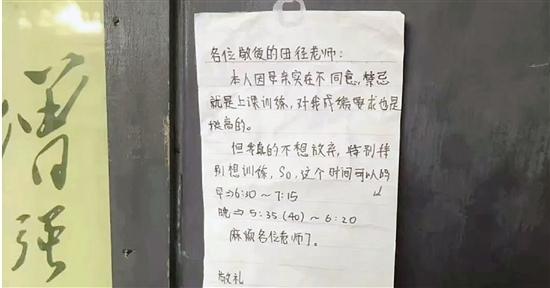 各位敬爱的田径老师：
本人因母亲实在不同意，禁忌
就是上课训练，对我成绩要求也是
挺高的。
但我真的不想放弃，特别特
别想训练，So，这个时间可以的
早⇒6:30～7:15
晚⇒5:35(40)～6:20
麻烦各位老师了。
敬礼